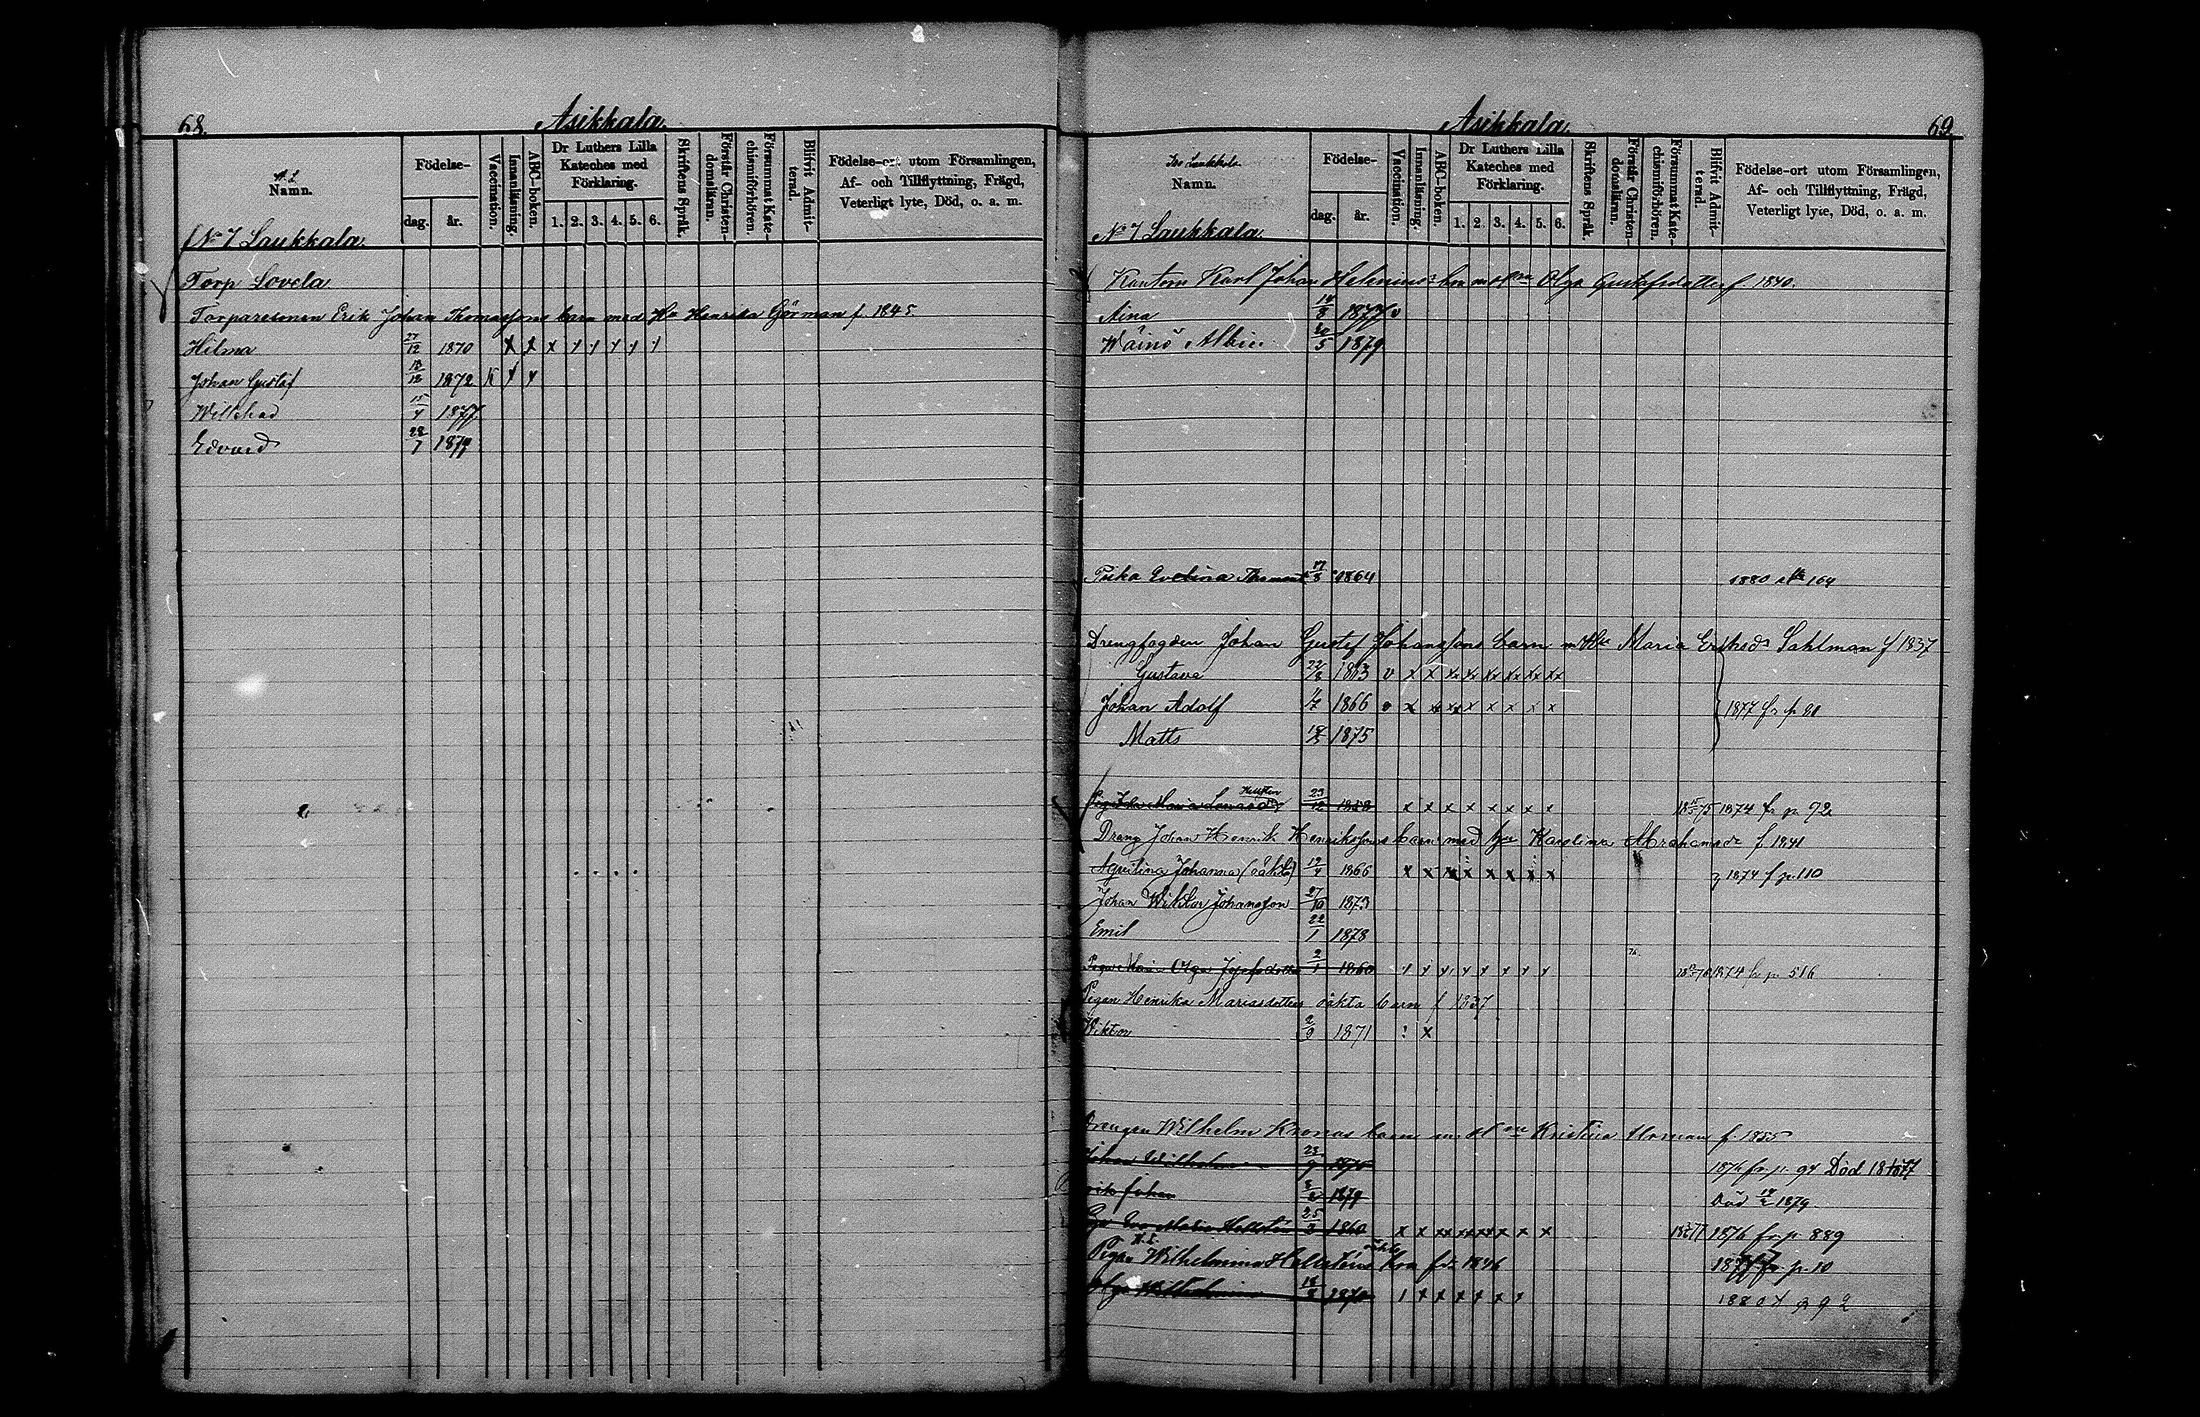 68.
Asikkala.
Namn.
Födelse-
dag.
år.
Vaccination.
Innanläsning.
ABC-boken.
Dr Luthers Lilla Kateches med Förklaring.
1. 2. 3. 4. 5. 6.
Skriftens Språk.
Förstår Christendomsläran.
Försummat Katechismiförhören.
Blifvit Admitterad.
Födelse-ort utom Församlingen,
Af- och Tillflyttning, Frägd,
Veterligt lyte, Död, o. a. m.
No 7 Laukkala.
Torp Sovela
Torparesonen Erik Johan Thomassons barn med Hu Henrika Görman f. 1845
Hilma 27/12 1870 x x x x x x x x
Johan Gustaf 1872
Willehad 15/4 1877
Edvard 28/7 1879
Asikkala.
69
Namn.
Födelse-
dag.
år.
Vaccination.
Innanläsning.
ABC-boken.
Dr Luthers Lilla Kateches med Förklaring.
1. 2. 3. 4. 5. 6.
Skriftens Språk.
Förstår Christendomsläran.
Försummat Katechismiförhören.
Blifvit Admitterad.
Födelse-ort utom Församlingen,
Af- och Tillflyttning, Frägd,
Veterligt lyte, Död, o. a. m.
No 7 Laukkala
Kantorn Karl Johan Helenius: Olga Gustafsdotter f 1840.
Aina 1877 v
Wäinö Albin 20/5 1879
Evelina 17/8 1864 1880 164
Drengfogden Johan Gustaf Johanssons barn m Hu Maria Eriksdr Sahlman f 1837
Gustava 22/8 1863 v x x xx xx xx xx xx xx
Johan Adolf 1866 v x xx xx x x x x x 1877 fr p 21
Matts 1875
Hellsten
23/12 1858 x x x x x x x x 1874 fr p. 92
Dreng Johan Henrik Henrikssons barn med hu Karolina Abrahamsdr f 1841
Aqvilina Johanna (oäkta) 1866 x x x x x x x x 1874 f p. 110
Johan Wiktor Johansson 27/10 1873
Emil 22/1 1878
Pigan Olga Josefsdotter 2/1 1860 1874 fr p. 516
Pigan Henrika Mariasdotters oäkta barn f 1837
Wiktor 2/9 1871 x
Drengen Wilhelm Kronas barn m. Kristina f. 1855
Johan Wilhelm 23/9 1875 1876 fr. p. 94 Död
Johan 1879 Död 1879
Eva Maria Hellsten 25/3 1860 x x xx xx xx x x x 1876 fr p 889
Pigan Wilhelmina Hellstens f. 1846 p. 10
Olga Wilhelmina 18/8 1870 1880 92